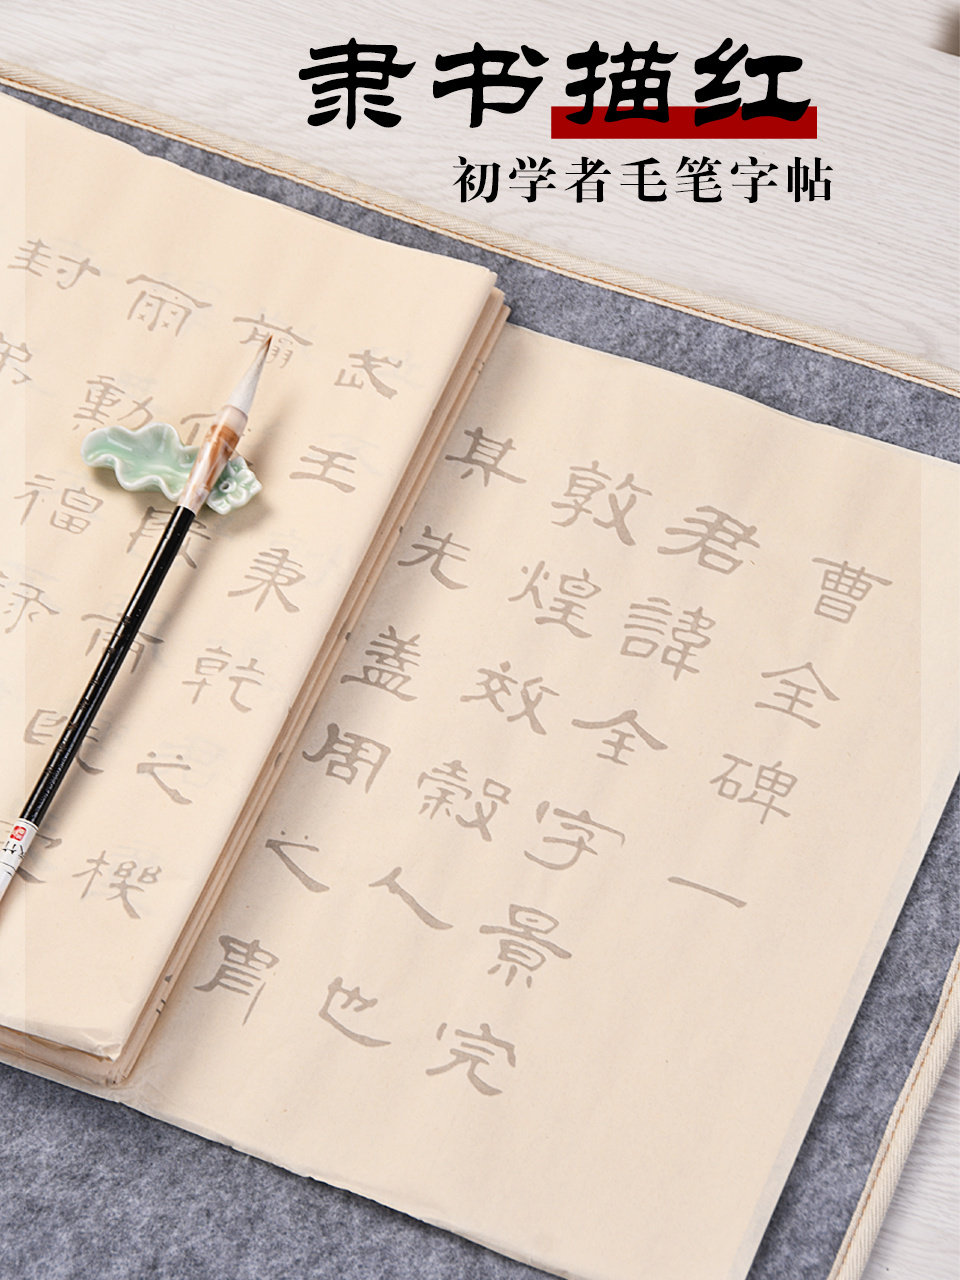 隶书描红
初学者毛笔字帖
曹全碑一
君諱全字景完
敦煌效穀人也
其先蓋周之胄
武王秉乾之機
翦伐殷商
爾勳福祿
封弟